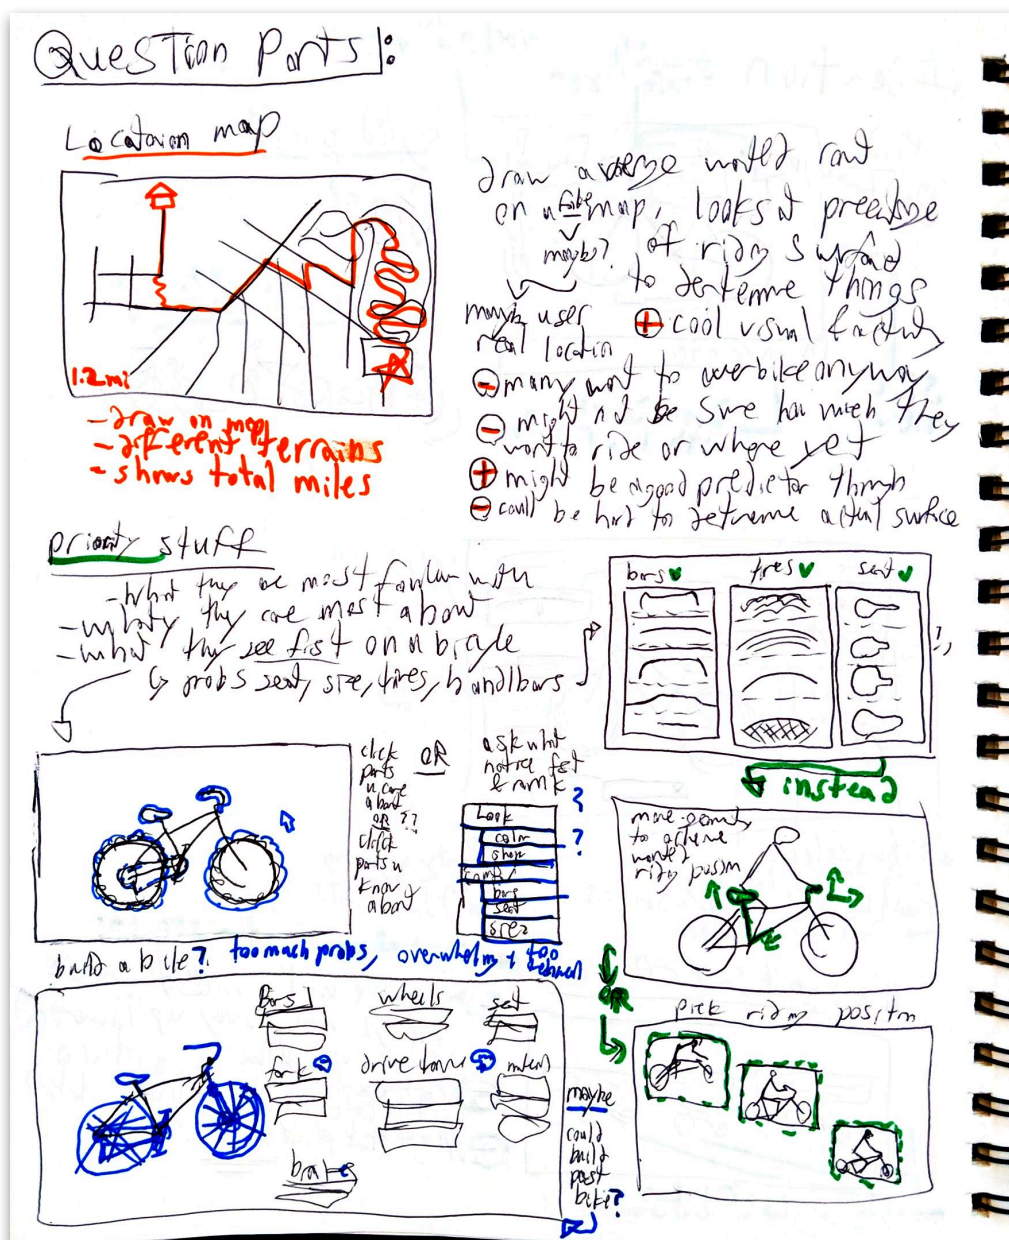 Question Parts:
Locataion map
1.2 mi
- draw on map
- different terrains
- shows total miles
draw average wanted rout
on a fake map, looks at
maybe?
of riding surface
to determine things
maybe user
real location
+ cool visual
- many want to overbike anyway
- might not be sure how much they
want to ride or where yet
+ might be a good predictor though
- could be hard to determine actual surface
priority stuff
- What they are most familar with
- what they care most about
- what they see first on a bicycle
probs seat, size, tires, handlbars
bars
tires
seat
?
instead
click
parts
u care
about
OR ??
click
parts u
know
about
OR
ask what
notice fst
& rank
?
?
Look
color
shape
comfy
bars
seat
size
more
to achieve
wanted
riding position
build a bike? too much probs, overwhelming + too
technical
OR
pick riding position
Bars
wheels
seat
fork
drive
brakes
maybe
could
build
past
bike?